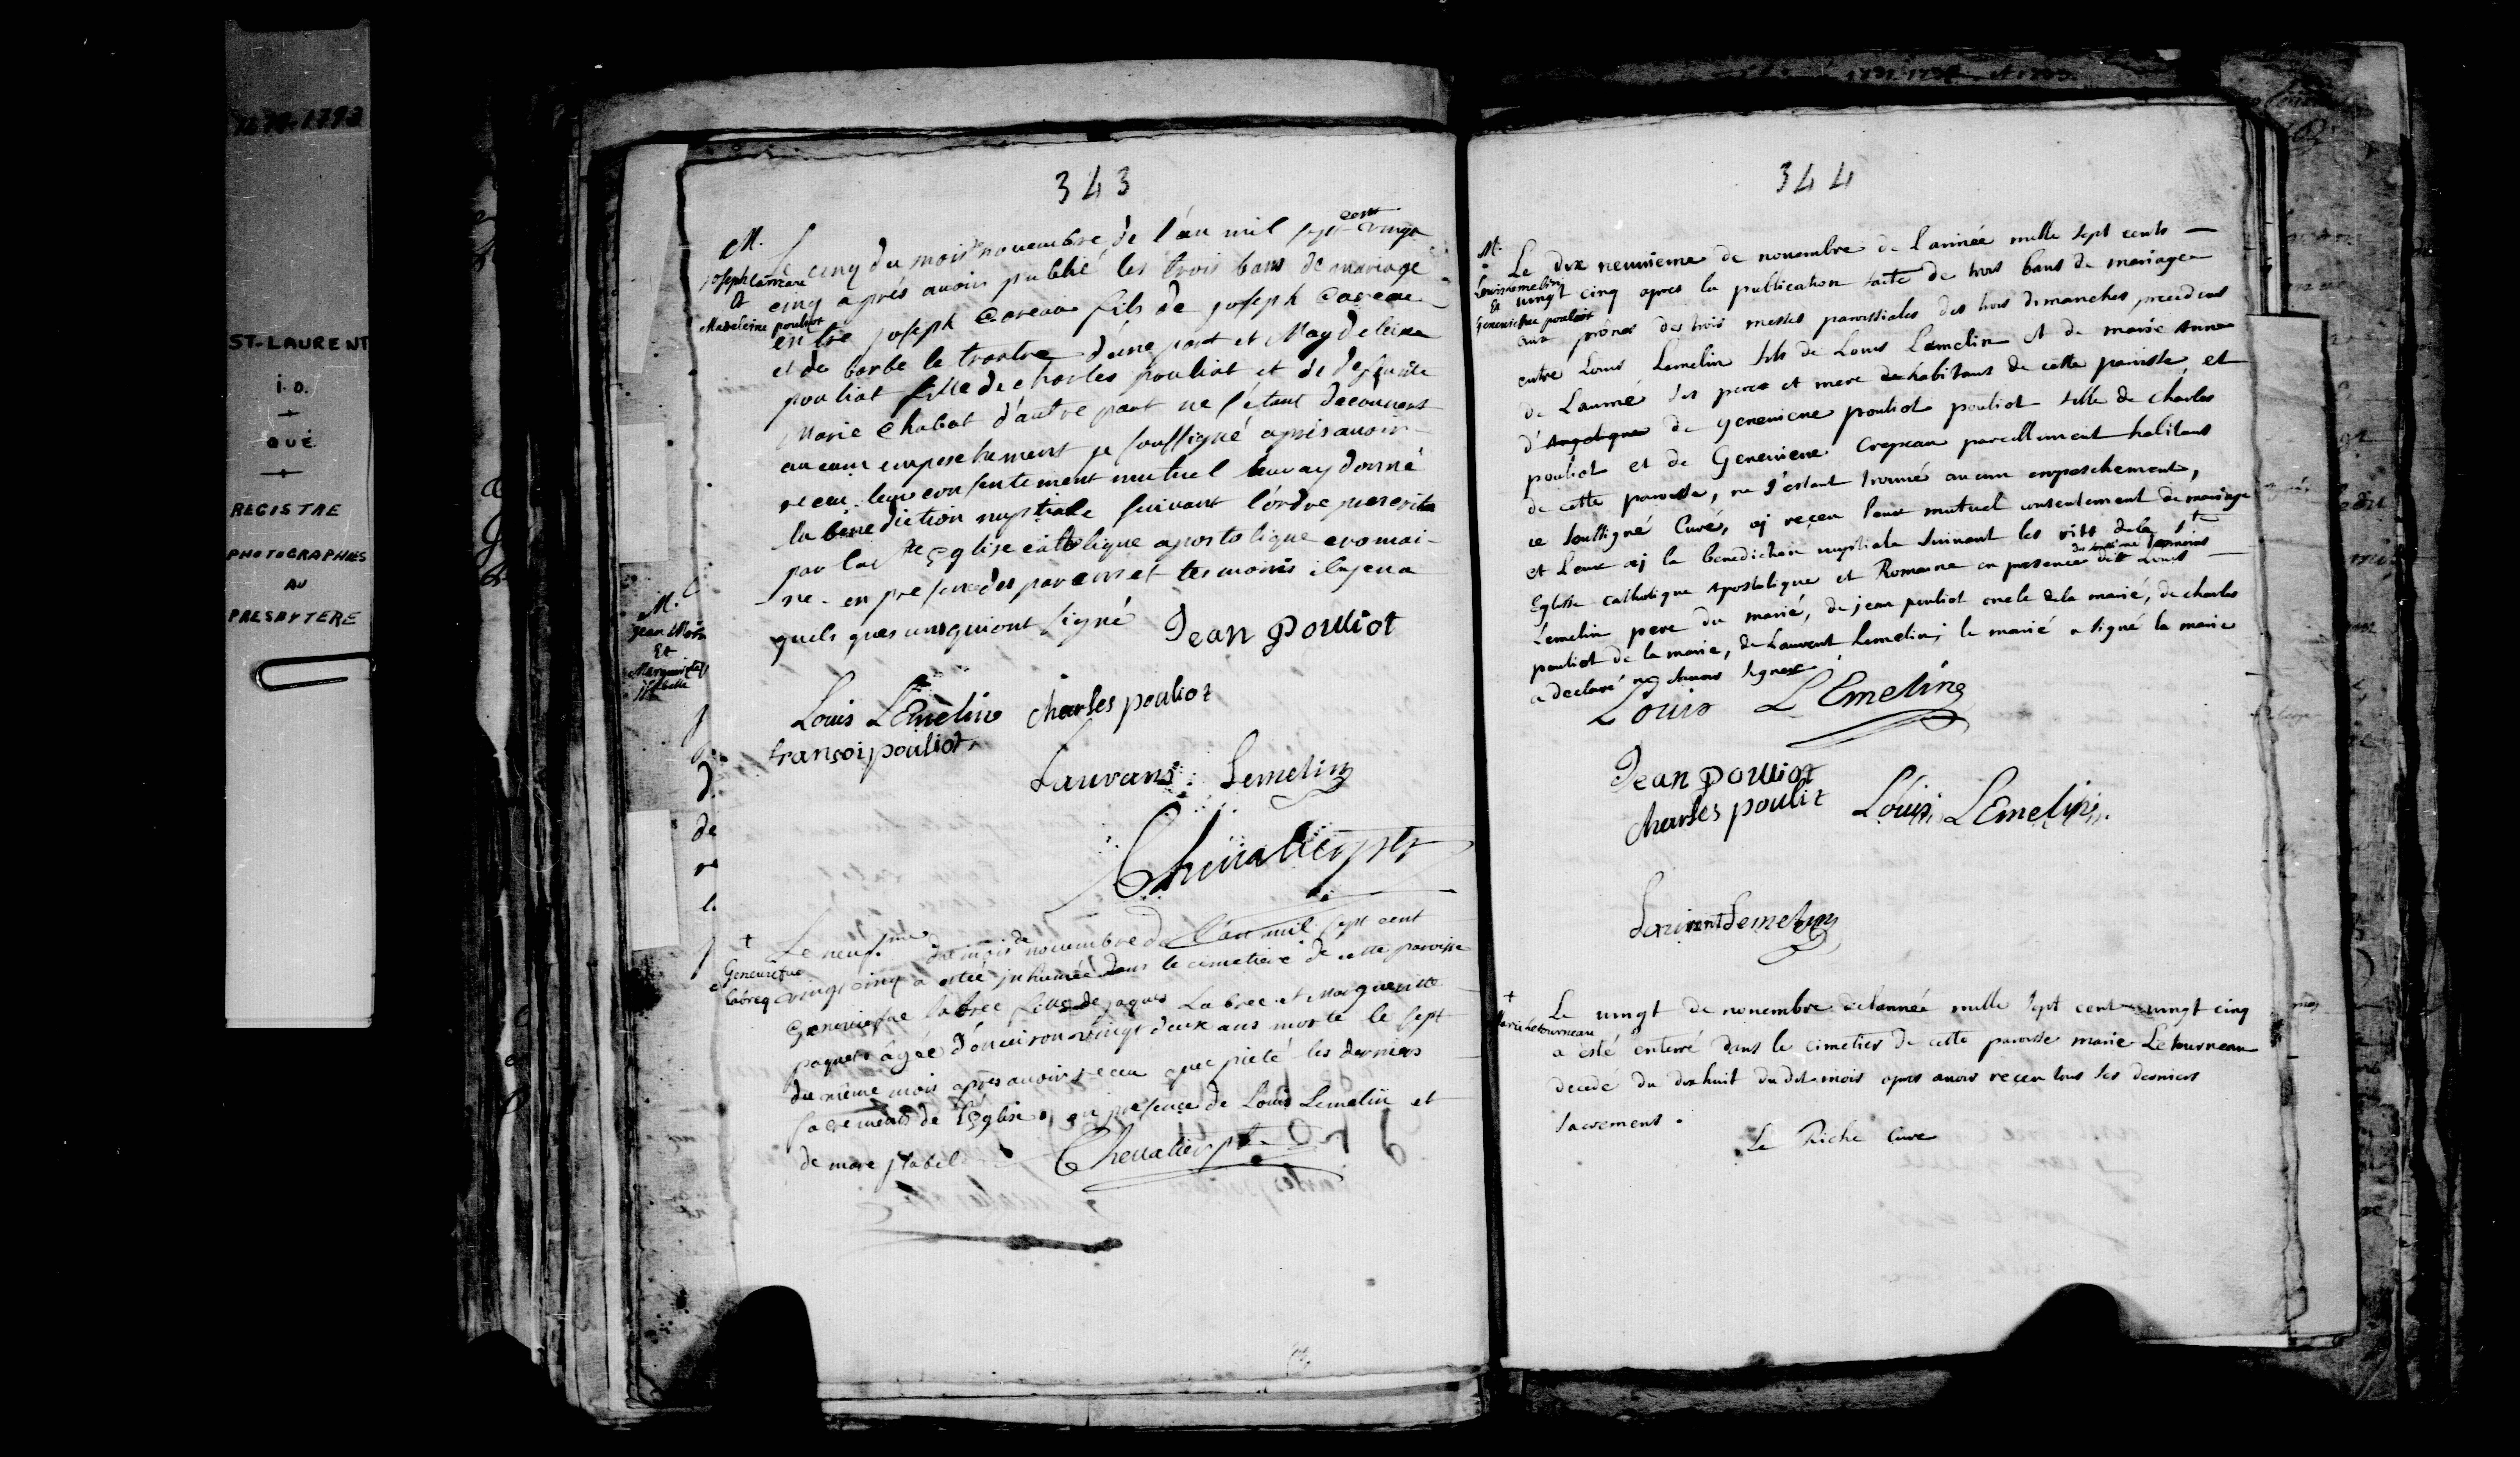 1679-1793
ST-LAURENT
i.o.
QUÉ
REGISTRE
PHOTOGRAPHIES
AU
PRESBYTERE
343
M.
Joseph Careau
et
Madeleine pouliot
Le cinq du mois de novembre de l'an mil sept cent vingt
cinq aprés avoir publié les trois bans de mariage
entre joseph Careau fils de joseph Careau
et de barbe le trartre d'une part et Magdeleine
pouliot fille de charles pouliot et de deffunte
Marie Chabot d'autre part ne s'étant decouvert
aucun empeschement je soussigné aprés avoir
receu leur consentement mutuel leur ay donné
la benediction nuptiale suivant l'ordre prescrite
par la Ste Eglise catholique apostolique et romai-
ne - en presence des parens et temoins il y en a
quels ques uns qui ont signé
Jean pouliot
Louis LEmelin charles pouliot
françoi pouliot
Lauvans Lemelin
Chevalier ptr
M.
jean
Et
Marguerite
jsabelle
de
†
Geneviefve
labreq
Le neuf.me du mois de novembre de l'an mil sept cent
vingt cinq a estée inhumée dans le cimetiere de cette paroisse
Geneviefve labrec fille de jaques Labrec et Marguerite
paquet âgée d'environ vingt deux ans morte le sept
du même mois aprés avoir receu avec pieté les derniers
sacrements de l'Eglise, en presence de Louis Lemelin et
de marc jsabel
Chevalier ptr
344
M.
Louis Lemelin
Et
Genevieve pouliot
Le dix neuvieme de novembre de l'année mille sept cents
vingt cinq apres la publication faite de trois bans de mariage
aux prones des trois messes paroissiales des trois dimanches precedens
entre Louis Lemelin fils de Louis Lemelin et de marie Anne
de Launé ses pere et mere habitans de cette paroisse, et
d'Angelique de genevieve pouliot pouliot fille de charles
pouliot et de Genevieve Crepeau pareillement habitans
de cette paroisse, ne s'estant trouvé aucun empeschement,
ie soussigné Curé, aj reçeu leur mutuel consentement de mariage
et leur aj la benediction nuptiale suivant les rits de la Ste
Eglise catholique Apostolique et Romaine en presence dit Louis
Lemelin pere du marié, de jean pouliot oncle de la marié, de charles
pouliot de la marie, de Laurent Lemelin; le marié a signé la marie
a declaré ne scavoir signer
Louis LEmelin
Jean pouliot
charles poulit Louis LEmelin
Laurent Lemelin
†
Marie Letourneau
Le vingt de novembre de lannée mille sept cent vingt cinq
a esté enterré dans le cimetier de cette paroisse marie Letourneau
decedé du dix huit du dit mois apres avoir reçeu tous ses derniers
sacrement.
Le Riche Curé